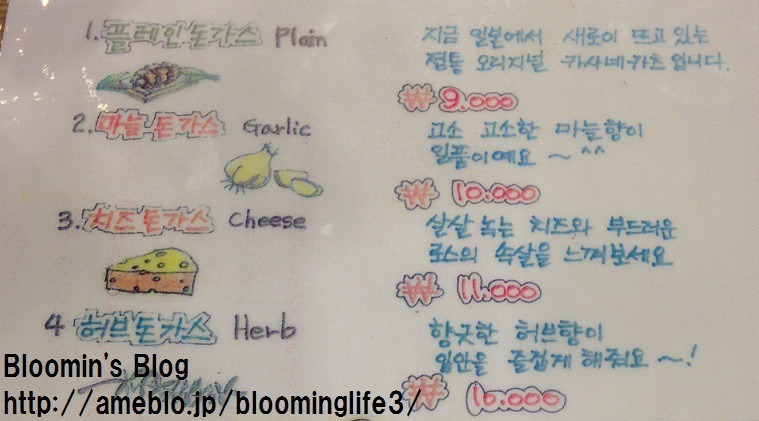 1. 플레인 돈가스 Plain
지금 일본에서 새로이 뜨고 있는
정통 오리지널 카사네카츠입니다.
₩ 9.000
2. 마늘 돈가스 Garlic
고소 고소한 마늘향이
일품이예요 ~ ^^
₩ 10.000
3. 치즈 돈가스 Cheese
살살 녹는 치즈와 부드러운
로스의 속살을 느껴보세요
₩ 11.000
4 허브 돈가스 Herb
향긋한 허브향이
입안을 즐겁게 해줘요 ~!
₩ 10.000
Bloomin's Blog
http://ameblo.jp/bloominglife3/